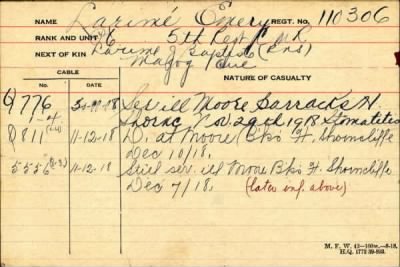 NAME Larimé Emery REGT. NO. 110306
RANK AND UNIT 5th Regt. C.M.R.
NEXT OF KIN Larimé J Baptiste (Ens)
Magog Que
CABLE
No. DATE NATURE OF CASUALTY
Q776 30-11-18 Ser ill Moore Barracks H.
Shornc Nov. 29th 1918 Stomatitis
Q811 11-12-18 D. at Moore Bks H. Shorncliffe
Dec 10/18.
5556 11-12-18 Still ser. ill Moore Bks H. Shorncliffe
Dec 7/18. (later inf. above)
M. F. W. 42—8-18.
H.Q. 1772 39-893.